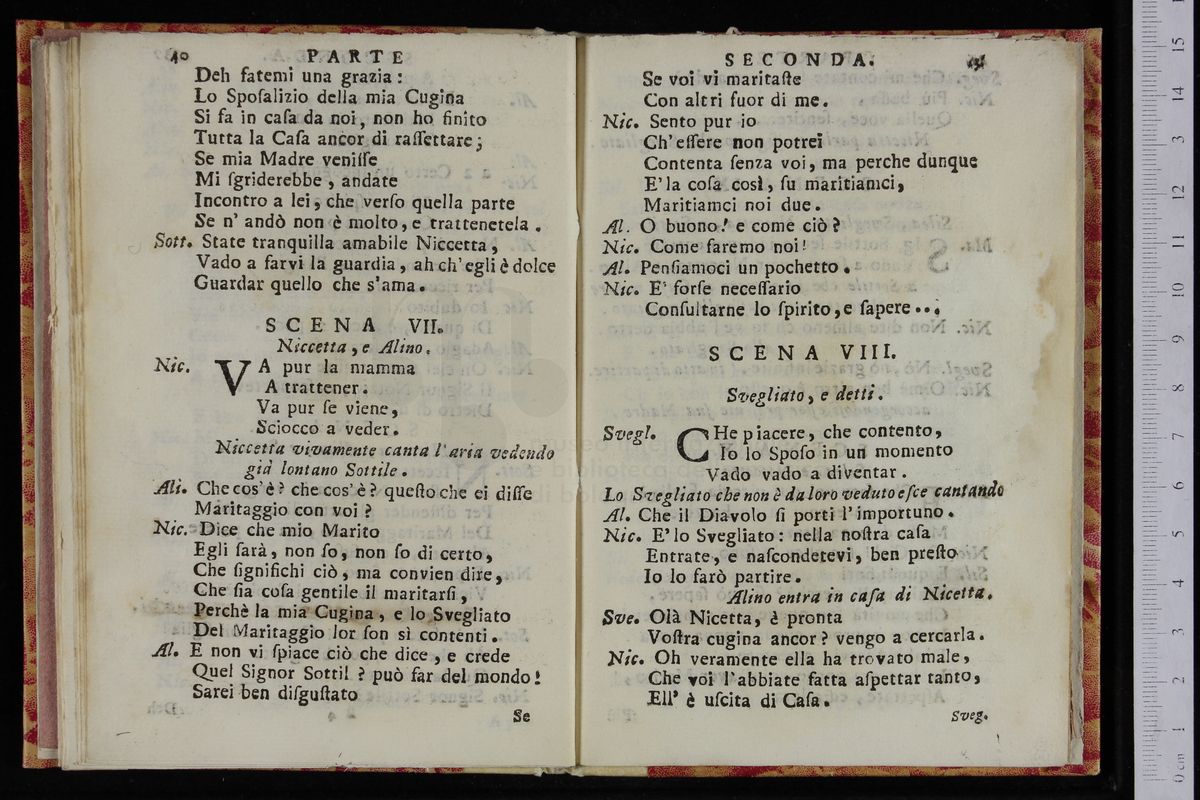 40 PARTE
Deh fatemi una grazia:
Lo Spoſalizio della mia Cugina
Si fa in caſa da noi, non ho finito
Tutta la Caſa ancor di raſſettare;
Se mia Madre veniſſe
Mi ſgriderebbe, andate
Incontro a lei, che verſo quella parte
Se n' andò non è molto, e trattenetela.
Sott. State tranquilla amabile Niccetta,
Vado a farvi la guardia, ah ch' egli è dolce
Guardar quello che s'ama.
SCENA VII.
Niccetta, e Alino.
Nic. VA pur la mamma
A trattener.
Va pur ſe viene,
Sciocco a veder.
Niccetta vivamente canta l'aria vedendo
già lontano Sottile.
Ali. Che cos' è? che cos' è? queſto che ei diſſe
Maritaggio con voi?
Nic. Dice che mio Marito
Egli ſarà, non ſo, non ſo di certo,
Che ſignifichi ciò, ma convien dire,
Che ſia coſa gentile il maritarſi,
Perchè la mia Cugina, e lo Svegliato
Del Maritaggio lor ſon sì contenti.
Al. E non vi ſpiace ciò che dice, e crede
Quel Signor Sottil? può far del mondo!
Sarei ben diſguſtato
Se
SECONDA.
Se voi vi maritaſte
Con altri fuor di me.
Nic. Sento pur io
Ch' eſſere non potrei
Contenta ſenza voi, ma perche dunque
E' la coſa così, ſu maritiamci,
Maritiamci noi due.
Al. O buono! e come ciò?
Nic. Come faremo noi!
Al. Penſiamoci un pochetto.
Nic. E' forſe neceſſario
Conſultarne lo ſpirito, e ſapere...
SCENA VIII.
Svegliato, e detti.
Svegl. CHe piacere, che contento,
Io lo Spoſo in un momento
Vado vado a diventar.
Lo Svegliato che non è da loro veduto eſce cantando
Al. Che il Diavolo ſi porti l'importuno.
Nic. E' lo Svegliato: nella noſtra caſa
Entrate, e naſcondetevi, ben preſto
Io lo farò partire.
Alino entra in caſa di Nicetta.
Sve. Olà Nicetta, è pronta
Voſtra cugina ancor? vengo a cercarla.
Nic. Oh veramente ella ha trovato male,
Che voi l'abbiate fatta aſpettar tanto,
Ell' è uſcita di Caſa.
Sveg.